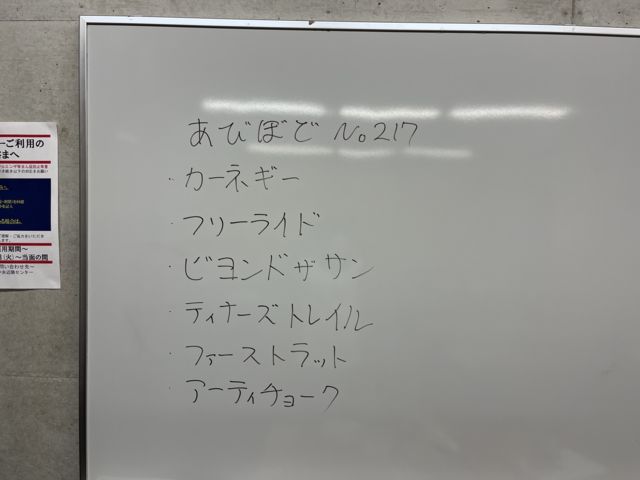 ーご利用の
まへ
あびぼど No.217
・カーネギー
・フリーライド
・ビヨンドザサン
・ティナーズトレイル
・ファーストラット
・アーティチョーク
用期間〜
(火)〜当面の間
問い合わせ先〜